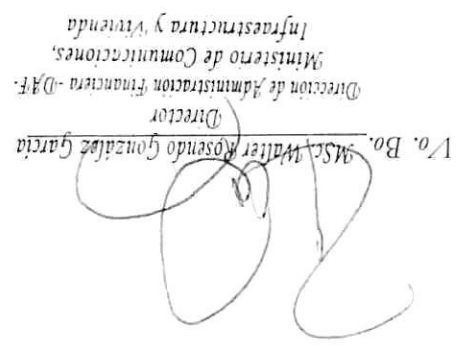 Vo. Bo. MSc. Walter Rosendo González García
Director
Dirección de Administración Financiera -DAF-
Ministerio de Comunicaciones,
Infraestructura y Vivienda